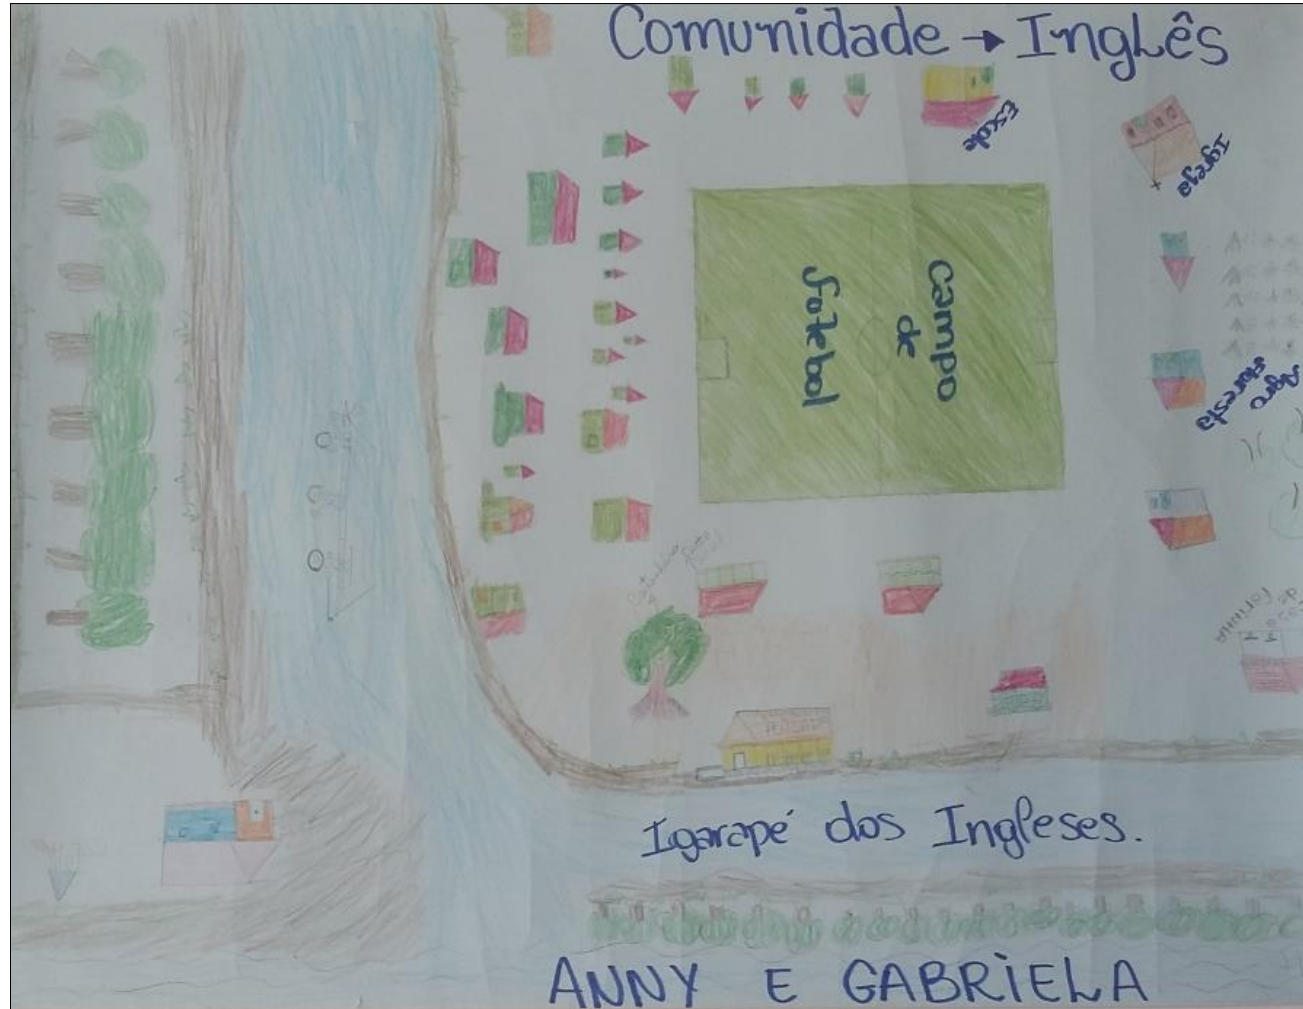 Comunidade → Inglês
Escola
Igreja
Campo
de
futebol
Agro
floresta
Casa
de
Farinha
Igarapé dos Ingleses.
ANNY E GABRIELA